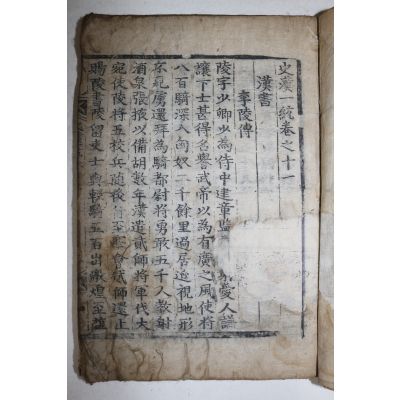 史漢一統卷之十一
漢書
李陵傳
陵字少卿少為侍中建章監 愛人謙
讓下士甚得名譽武帝以為有廣之風使將
八百騎深入匈奴二千餘里過居延視地形
不見虜還拜為騎都尉將勇敢五千人教射
酒泉張掖以備胡數年漢遣貳師將軍伐大
宛使陵將五校兵隨後 至塞會貳師還上
賜陵書陵留吏士與輕騎五百出燉煌至鹽